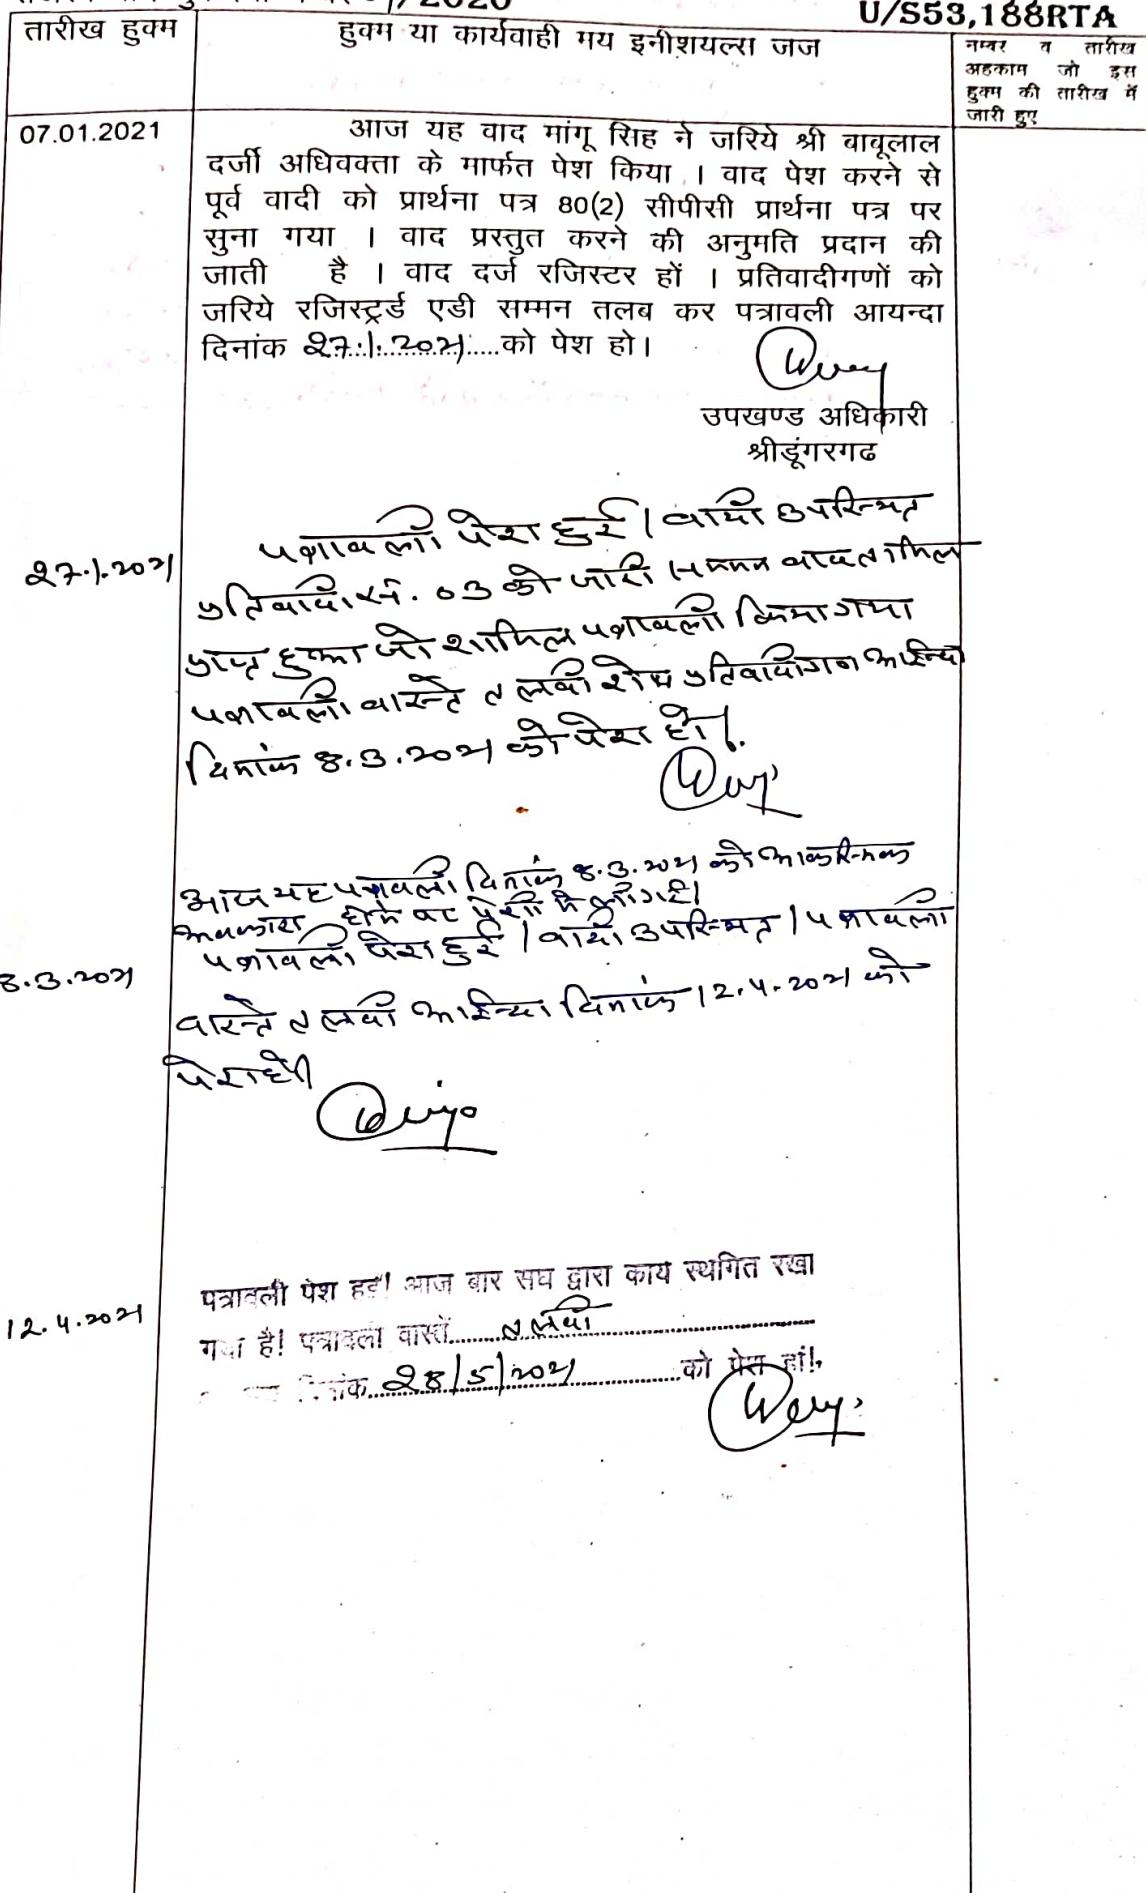 /2020
U/S53,188RTA
तारीख हुक्म
हुक्म या कार्यवाही मय इनीशयल्स जज
नम्बर व तारीख
अहकाम जो इस
हुक्म की तारीख में
जारी हुए
07.01.2021
आज यह वाद मांगू सिह ने जरिये श्री बाबूलाल
दर्जी अधिवक्ता के मार्फत पेश किया । वाद पेश करने से
पूर्व वादी को प्रार्थना पत्र 80(2) सीपीसी प्रार्थना पत्र पर
सुना गया । वाद प्रस्तुत करने की अनुमति प्रदान की
जाती है । वाद दर्ज रजिस्टर हों । प्रतिवादीगणों को
जरिये रजिस्ट्रर्ड एडी सम्मन तलब कर पत्रावली आयन्दा
दिनांक 27.1.2021 को पेश हो।
उपखण्ड अधिकारी
श्रीडूंगरगढ
27.1.2021
पत्रावली पेश हुई। वादी उपस्थित
प्रतिवादी सं. 03 को जारी सम्मन बाद तामिल
प्राप्त हुआ जो शामिल पत्रावली किया गया
पत्रावली वास्ते तलबी शेष प्रतिवादीगण आईन्दा
दिनांक 8.3.2021 को पेश हो।
आज यह पत्रावली दिनांक 8.3.2021 को आकस्मिक
अवकाश होने पर पेशी में ली गई।
8.3.2021
पत्रावली पेश हुई। वादी उपस्थित। पत्रावली
वास्ते तलबी आईन्दा दिनांक 12.4.2021 को
पेश हो।
12.4.2021
पत्रावली पेश हुई! आज बार संघ द्वारा कार्य स्थगित रखा
गया है! पत्रावली वास्ते तलबी
दिनांक 28/5/2021 को पेश हो!